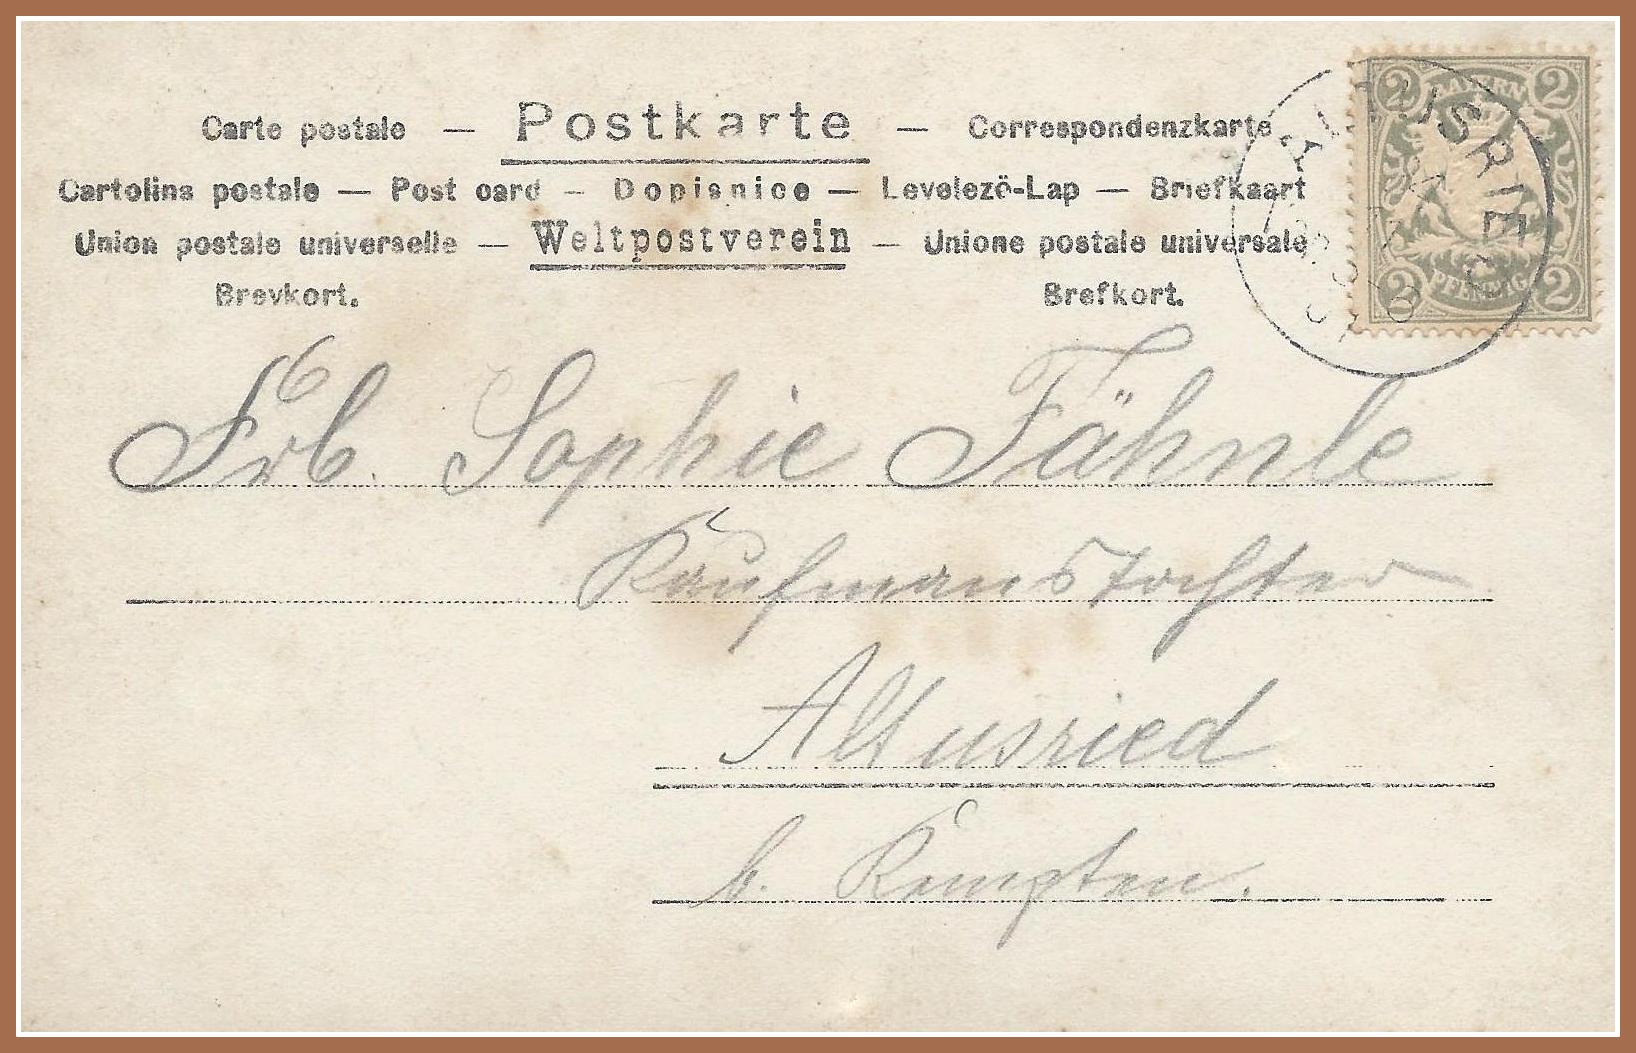 Carte postale — Postkarte — Correspondenzkarte
Cartolina postale — Post card — Dopisnice — Levelező-Lap — Briefkaart
Union postale universelle — Weltpostverein — Unione postale universale
Brevkort. Brefkort.
2 BAYERN 2
2 PFENNIG 2
ALTUSRIED
Frl. Sophie Fähnle
Kaufmanstochter
Altusried
b. Kempten.